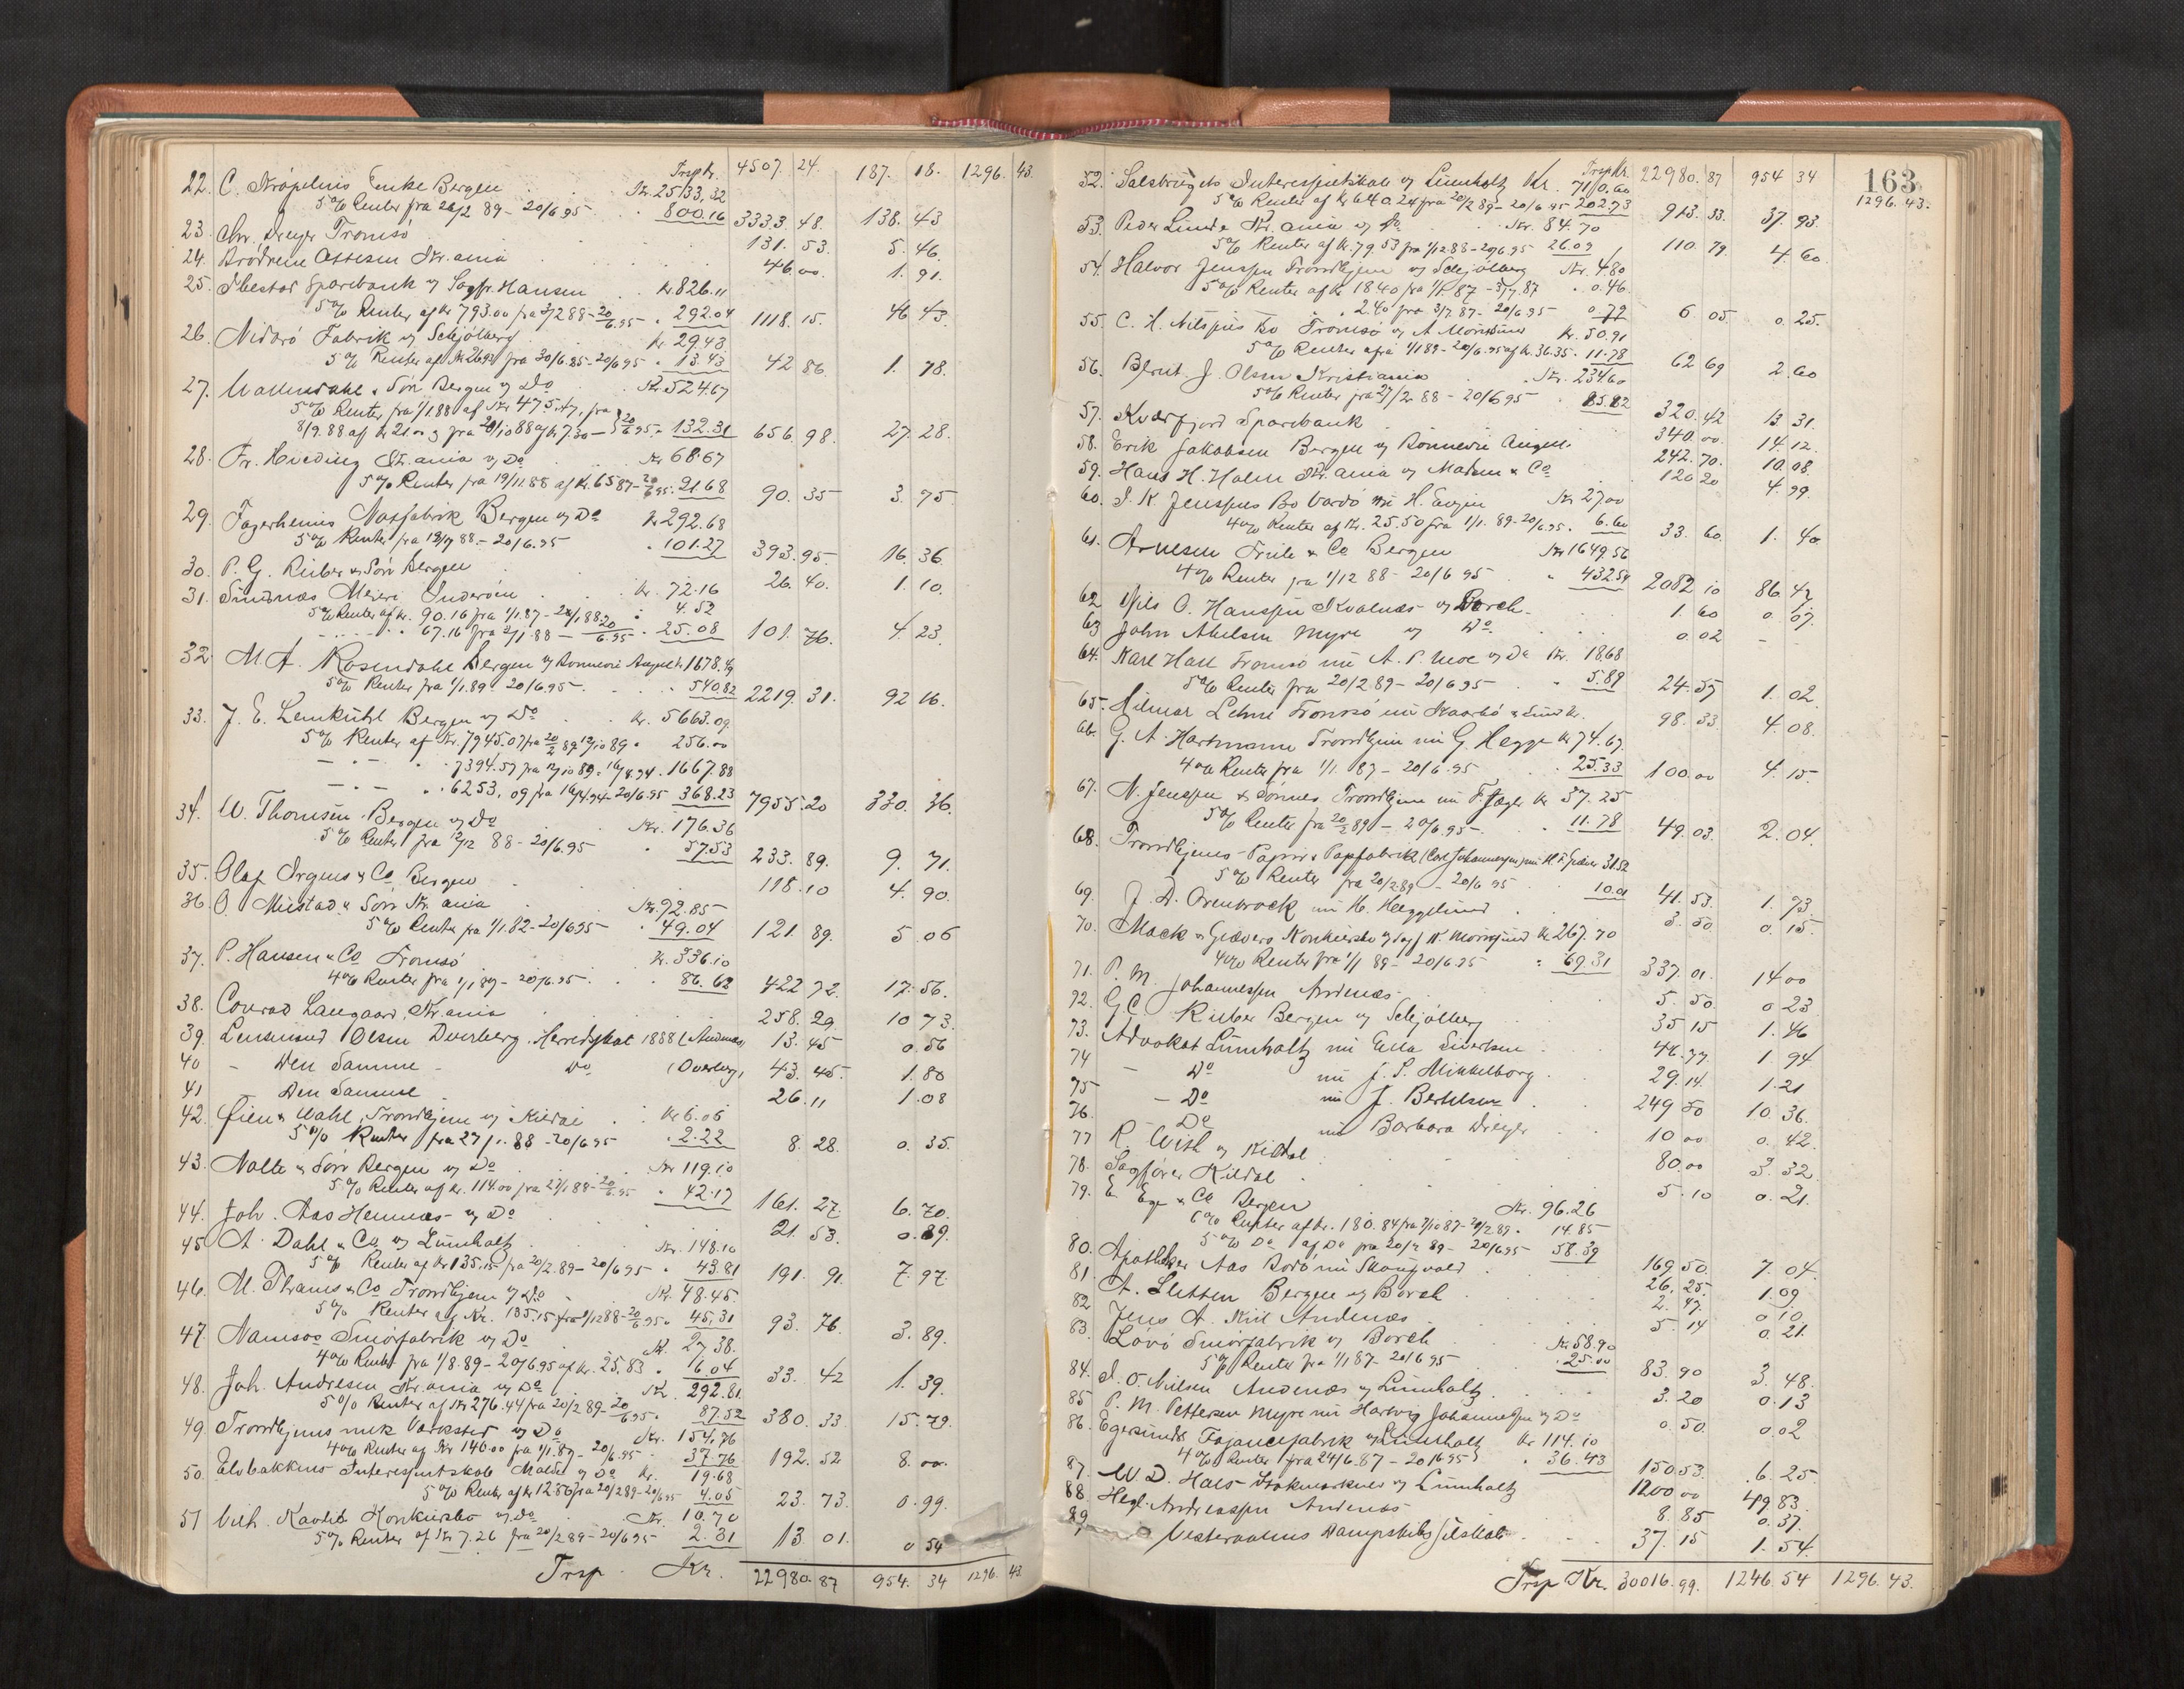 Trsp Kr. 4507. 24. 187. 18. 1296. 43.
22. C. Krøpelins Enke Bergen Kr. 2533,32
5% Renter fra 20/2 89 - 20/6 95 800.16 3333. 48. 138. 43
23. Chr. Dreyer Tromsö 131. 53. 5. 46.
24. Brödrene Kr.ania 46.00. 1. 91.
25. Ibestad Sparebank v Sagfr. Hansen Kr 826.11
5% Renter af Kr 793.00 fra 88 - 20/6.95 292.04 1118. 15. 46 43.
26. Nidarö Fabrik v Schjölberg Kr 29.43
5% Renter af Kr 26.92 fra 30/6.85 - 20/6 95 13.43 42 86. 1. 78.
27. Wallendahl & Sön Bergen v Do Kr. 524.67
5% Renter fra 1/1.88 af Kr 475.
8/9.88 af Kr 21.00 & fra 20/10 88 af Kr 7.30 - 20/6.95. 132.31 656. 98. 27. 28.
28. Fr. Hviding Kr.ania v Do Kr 68.67
5% Renter fra 19/11.88 af Kr. 65.87 - 20/6 95. 21.68 90. 35 3. 75
29. Fagerheims Notfabrik Bergen v Do Kr 292.68
5% Renter fra 88. - 20/6.95 101.27 393. 95. 16. 36.
30. P. G. Rieber & Sön Bergen 26. 40. 1. 10.
31. Meieri Inderöen Kr. 72.16
5% Renter af Kr. 90.16 fra 1/1.87 - 1.88 4.52
67.16 fra 88 - 20/6.95 25.08 101. 76. 4. 23.
32. M. A. Rosendahl Bergen v Ronnevi Angell 1678.49
5% Renter fra 1/1.89 - 20/6.95 540.82 2219. 31. 92 16.
33. J. E. Lemkühl Bergen v Do Kr. 5663.09
5% Renter af Kr. 7945.07 fra 20/2 89 12/10 89 256.00
7394.57 fra 12/10 89 - 16/8.94 1667.88
6253,09 fra 94 - 20/6 95 368.23 7955. 20 330. 36.
34. W. Thomsen Bergen v Do Kr. 176.36
5% Renter fra 12/12 88 - 20/6.95 57.53 233. 89. 9. 71.
35. Olaf Irgens & Co Bergen 118. 10 4. 90.
36. O. Mustad & Sön Kr.ania Kr. 92.85
5% Renter fra 1/1.82 - 20/6 95 49.04 121. 89. 5. 06
37. P. Hansen & Co Tromsö Kr. 336.10
4% Renter fra 1/1 89 - 20/6.95 86.62 422 72. 17. 56.
38. Conrad Langaard, Kr.ania 258. 29. 10 73.
39. Lensmand Olsen Dverberg. Herredskat 1888 (Andenæs) 13. 45 0. 56
40 - Den Samme - Do (Dverberg) 43. 45. 1. 80
41 Den Samme 26. 11 1. 08
42. Öien & Wahl, Trondhjem v Kildal Kr 6.06
5% Renter fra 27/1. 88 - 20/6 95 2.22 8. 28. 0. 35.
43. Nolte & Sön Bergen v Do Kr 119.10
5% Renter af Kr. 114.00 fra 27/1 88 - 20/6.95 42.17 161. 27. 6. 70.
44. Joh. Aas Hennæs v Do 21. 53. 0. 89.
45 A. Dahl & Co v Lumholtz Kr. 148.10
5% Renter af Kr 135.15 fra 20/2.89 - 20/6 95 43.81 191. 91. 7. 97.
46. M. Thams & Co Trondhjem v Do Kr. 48.45.
5% Renter af Kr. 135.15 fra 1/12 88 - 20/6 95. 45,31 93. 76. 3. 89.
47. Namsos Smörfabrik v Do Kr. 27.38.
4% Renter fra 1/8.89 - 20/6.95 af Kr. 25.83 6.04 33. 42 1. 39.
48. Joh. Andresen Kr.ania v Do Kr. 292.81
5% Renter af Kr 276.44 fra 20/2 89 - 20/6.95. 87.52 380. 33. 15. 79.
49 Trondhjems mek Værksted v Do Kr. 154,76
4% Renter af Kr 140.00 fra 1/1.87 - 20/6.95 37.76 192. 52 8. 00.
50. Elvbakkens Interesentskab Malde v Do Kr. 19.68
5% Renter af Kr 12.80 fra 20/2 89 - 20/6 95 4.05 23. 73. 0. 99.
51 Vilh. Kavlis Konkursbo v Do Kr. 10.70
5% Renter af Kr 7.26 fra 20/2 89 - 20/6 95 2.31 13. 01. 0 54
Trsp. Kr. 22980. 87 954. 34 1296. 43
163
Trsp Kr. 22980. 87 954 34 1296. 43.
52. Salsbrugets Interesentskab v Lumholtz Kr. 710.60
5% Renter af Kr 640.24 fra 20/2 89 - 20/6 95 202.73 913. 33. 37. 93.
53. Peder Lunde Kr.ania v Do Kr. 84.70
5% Renter af Kr. 79.53 fra 1/12.88 - 20/6.95 26.09 110. 79. 4. 60.
54. Halvor Jenssen Trondhjem v Schjölberg Kr. 4.80
5% Renter af Kr 18.40 fra 1/1. 87 - 3/7.87 0.46.
2.40 fra 3/7 87 - 20/6 95 0.79 6. 05 0. 25.
55. C. H. Nilssens Bo Tromsö v A Kr. 50.91
5% Renter fra 1/1 89 - 20/6.95 af Kr. 36.35. 11.78 62 69 2. 60
56. Bernt. J. Olsen Kristiania Kr. 234.60
5% Renter fra 27/2 88 - 20/6 95 85.82 320. 42 13. 31.
57. Kvæfjord Sparebank 340. 00. 14. 12.
58. Erik Jakobsen Bergen v Ronnevi Angell. 242. 70. 10. 08.
59. Hans H. Holm Kr.ania v Madsen & Co 120 20 4. 99.
60. I. K. Jenssens Bo Vardö m/ H. Kr 27.00
4% Renter af Kr. 25.50 fra 1/1. 89 - 20/6 95. 6.60 33. 60. 1. 40
61. Arnesen Friele & Co Bergen Kr 1649.56
4% Renter fra 1/12 88 - 20/6 95 432.54 2082 10 86. 47
62 Nils O. Hanssen Kvalnæs v Borch. 1. 60 0. 07.
63 John Abelsen Myre v Do. 0. 02 - -
64. Karl Hall Tromsö m/ A. P. Moe v Do Kr. 18.68
5% Renter fra 20/2 89 - 20/6 95 5.89 24. 57 1. 02.
65. Hilmar Lehne Tromsö m/ Skaarbö 98. 33 4. 08.
66. G. A. Hartmann Trondhjem m/ G. Hegge Kr 74.67.
4% Renter fra 1/1. 87 - 20/6.95 25.33 100. 00 4. 15.
67. N. Jenssen & Sönner Trondhjem m/ F. Jæger Kr 37. 25
5% Renter fra 20/2 89 - 20/6.95. 11.78 49. 03. 2. 04.
68. Trondhjems Papir & Papfabrik (Carl Johannesen) m/ 31.52
5% Renter fra 20/2.89 - 20/6 95 10.01 41. 53. 1. 73
69. J. D. m/ H. Heggelund 3. 50. 0. 15.
70. Mack & Giævers Konkursbo v Sagf. Kr. 267.70
4% Renter fra 1/1 89 - 20/6.95 69.31 337. 01. 14 00
71. P. M. Johannessen Andenæs 5. 50. 0 23
72. G. C. Rieber Bergen v Schjölberg 35 15 1. 46
73. Advokat Lumholtz m/ Ella Sivertsen 46. 77 1 94
74 - Do m/ J. S. Mikkelborg 29. 14. 1. 21
75 - Do m/ J. Bertelsen 249 50 10 36.
76. - Do m/ Barbara Dreyer 10 00 0. 42.
77 R. With v Kildal 80. 00 3. 32.
78. Sagförer Kildal 5. 10 0. 21.
79. E. Ege & Co Bergen Kr. 96.26
6% Renter af Kr. 180.84 fra 7/10 87 - 20/2 89. 14.85
5% Do af Do fra 20/2 89 - 20/6 95 58.39 169 50. 7. 04.
80. Apotheker Aas Bodö m/ Skougvold 26. 25. 1. 09
81. A. Sletten Bergen v Borch 2. 47. 0 10
82 Jens A. Kiil Andenæs 5. 14 0. 21.
83. Lovö Smörfabrik v Borch Kr 58.90
5% Renter fra 1/1 87 - 20/6 95 25.00 83. 90 3. 48.
84. I. O. Nilsen Andenæs v Lumholtz 3. 20 0. 13
85 P. M. Pettersen Myre m/ Hartvig Johannessen v Do 0. 50. 0. 02
86. Egersunds Fajancefabrik v Lumholtz Kr 114.10
4% Renter fra 24/6.87 - 20/6 95 36.43 150 53. 6. 25
87. W. D. Hals Stokmarknes v Lumholtz 1200 00 49 83.
88 Hegl. Andreassen Andenæs 8. 85 0. 37.
89 Vesteraalens Dampskibsselskab 37. 15 1. 54.
Trsp Kr. 30016. 99. 1246. 54 1296. 43.